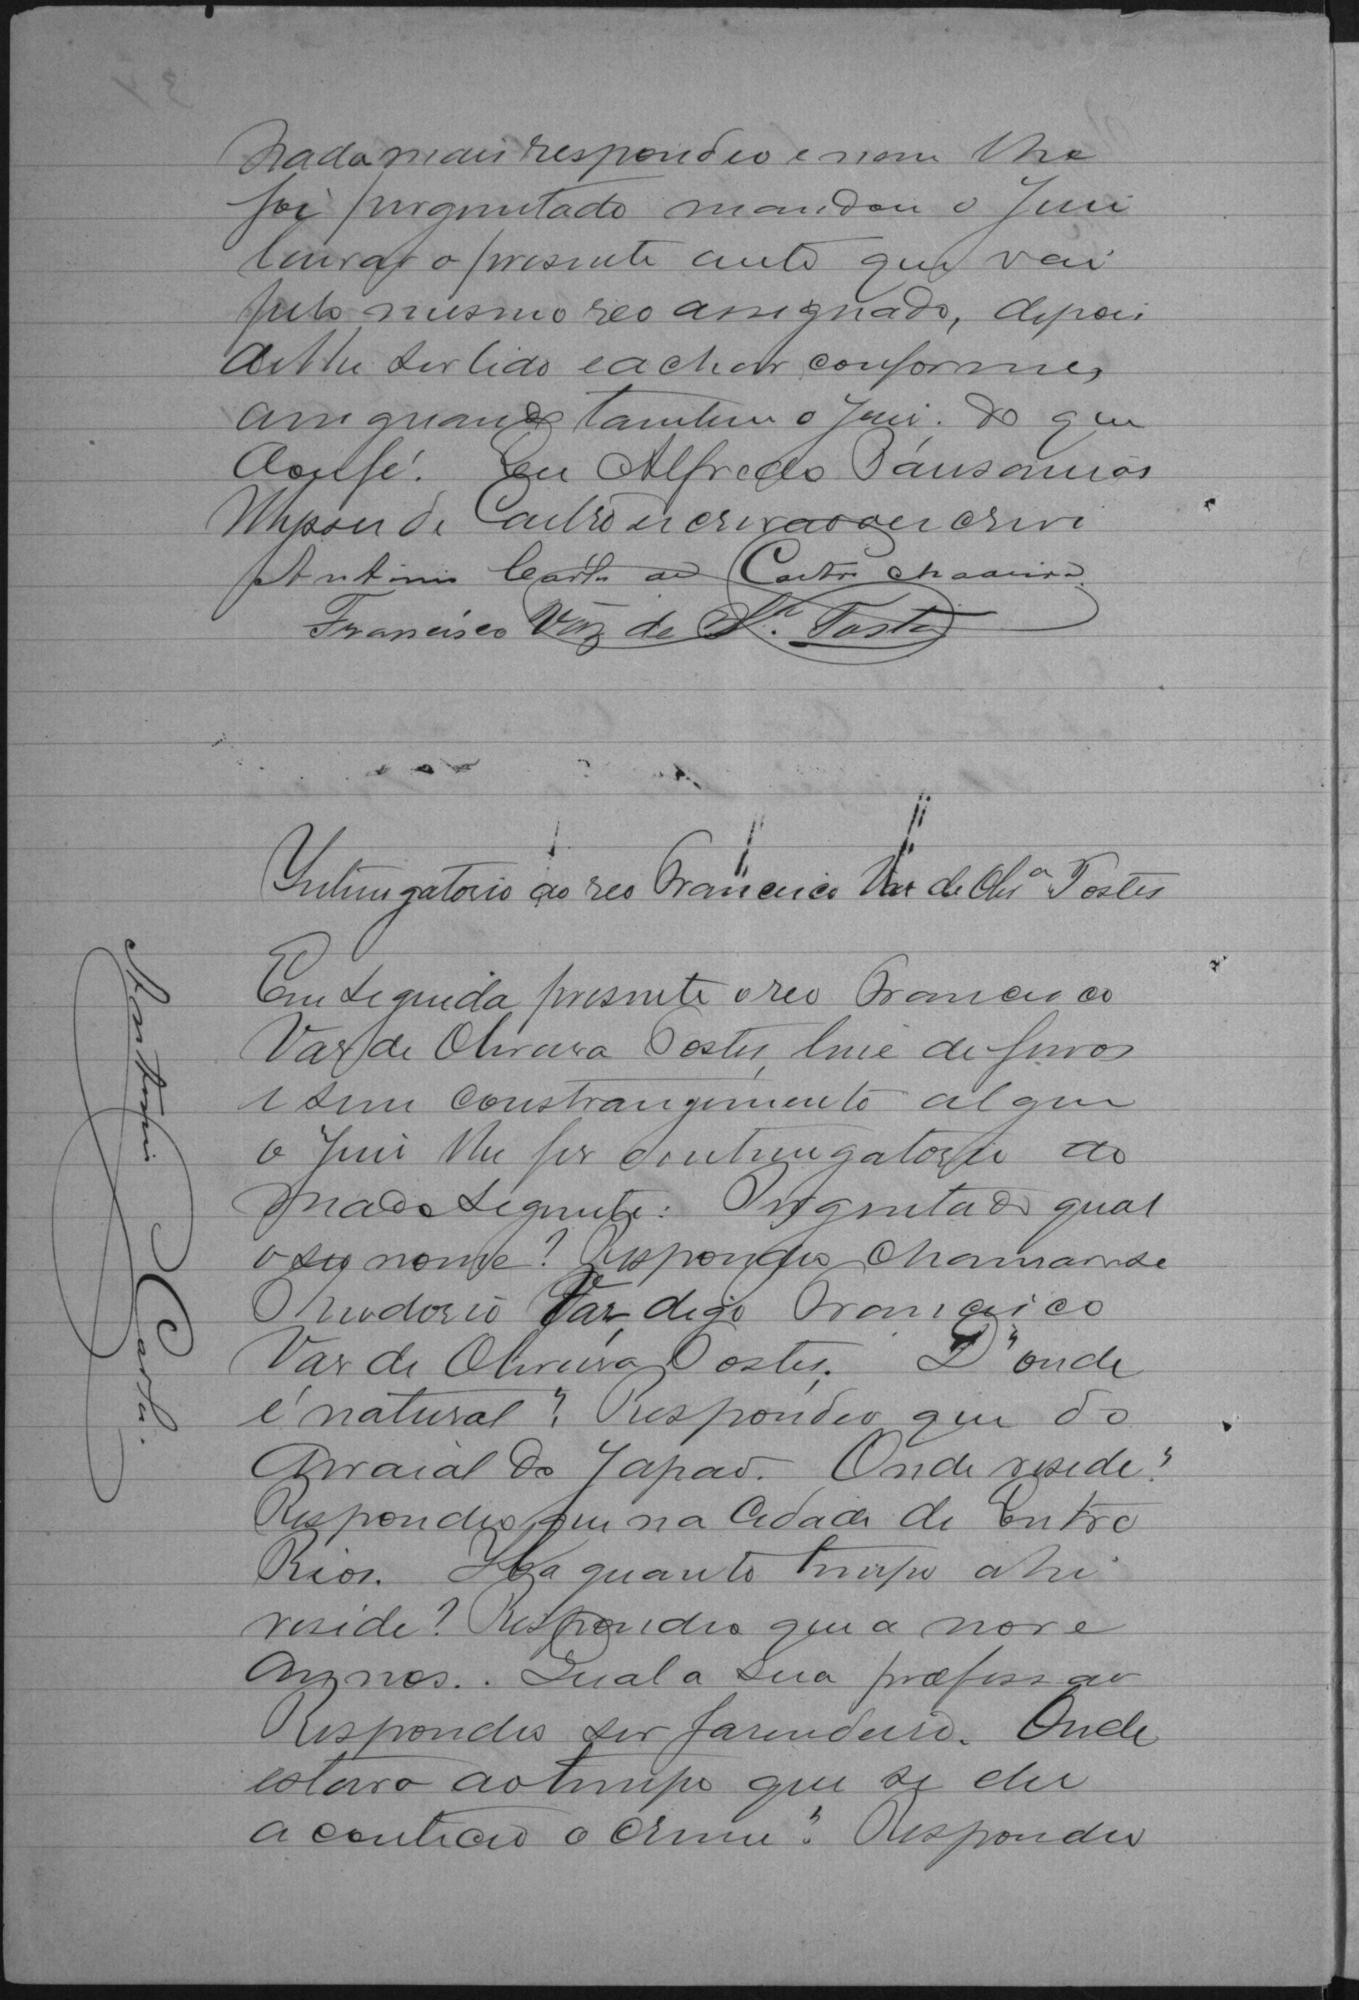 Nada mais respondeo e nem lhe
foi perguntado mandou o Juiz
lavrar o presente auto que vai
pelo mesmo reo assignado, depois
de lhe ser lido e achar conforme,
assignando tambem o Juiz. do que
dou fé. Eu Alfredo Pausanias
de Castro escrivão o escrevi
Antonio Costa de Castro
Francisco Vaz de Olª. Tostes
Interrogatorio ao reo Francisco Vaz de Olivª Tostes
Em seguida presente o reo Francisco
Vaz de Oliveira Tostes, livre de ferros
e sem constrangimento algum
o Juiz lhe fez o interrogatorio do
modo seguinte: Perguntado qual
o seo nome? Respondeo chamar-se
Theodorio Vaz, digo Francisco
Vaz de Oliveira Tostes. D'onde
é natural? Respondeo que do
Arraial do Japão. Onde reside?
Respondeo que na Cidade de Entre
Rios. Ha quanto tempo ahi
reside? Respondeo que a nove
annos. Qual a sua profissão
Respondeo ser fazendeiro. Onde
estava ao tempo que se deu
acontecido o crime? Respondeo
Antonio Costa.